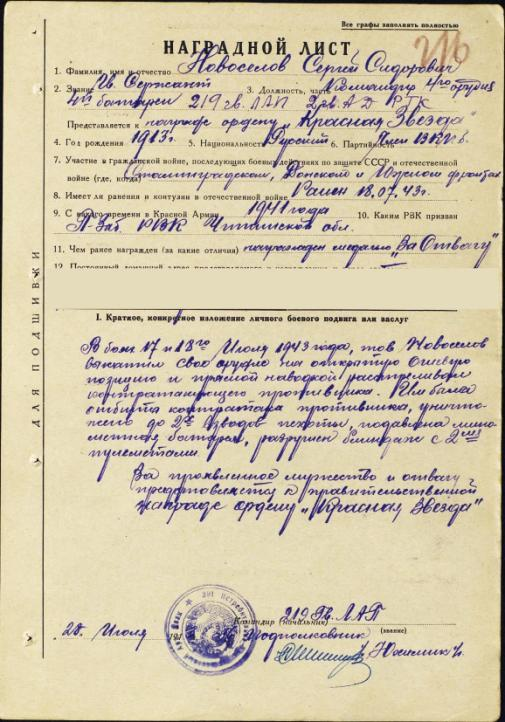 Все графы заполнять полностью
216
НАГРАДНОЙ ЛИСТ
1. Фамилия, имя и отчество Новоселов Сергей Сидорович
2. Звание Гв. Сержант 3. Должность, часть Командир 4го орудия
4й батареи 219 гв. ЛАП 2 гв. А.Д. РГК
Представляется к награде ордену "Красная Звезда"
4. Год рождения 1913г. 5. Национальность Русский 6. Партийность Член ВКП/б.
7. Участие в гражданской войне, последующих боевых действиях по защите СССР и отечественной
войне (где, когда) Сталинградском, Донском и Южном фронтах
8. Имеет ли ранения и контузии в отечественной войне Ранен 18.07.43г.
9. С какого времени в Красной Армии 1941 года 10. Каким РВК призван
П-Заб. РВК Читинской обл.
11. Чем ранее награжден (за какие отличия) награжден медалью "За Отвагу"
I. Краткое, конкретное изложение личного боевого подвига или заслуг
В боях 17 и 18го Июля 1943 года, тов. Новоселов
выкатил свое орудие на открытую огневую
позицию и прямой наводкой расстреливал
контратакующего противника. Им была
отбита контратака противника, уничто-
жено до 2х взводов пехоты, подавлена мино-
метная батарея, разрушен блиндаж с 2мя
пулеметами.
За проявленное мужество и отвагу
представляется к правительственной
награде ордену "Красная Звезда"
219 Гв. ЛАП
Командир (начальник)
Июля 194 Подполковник (звание)
ДЛЯ ПОДШИВКИ